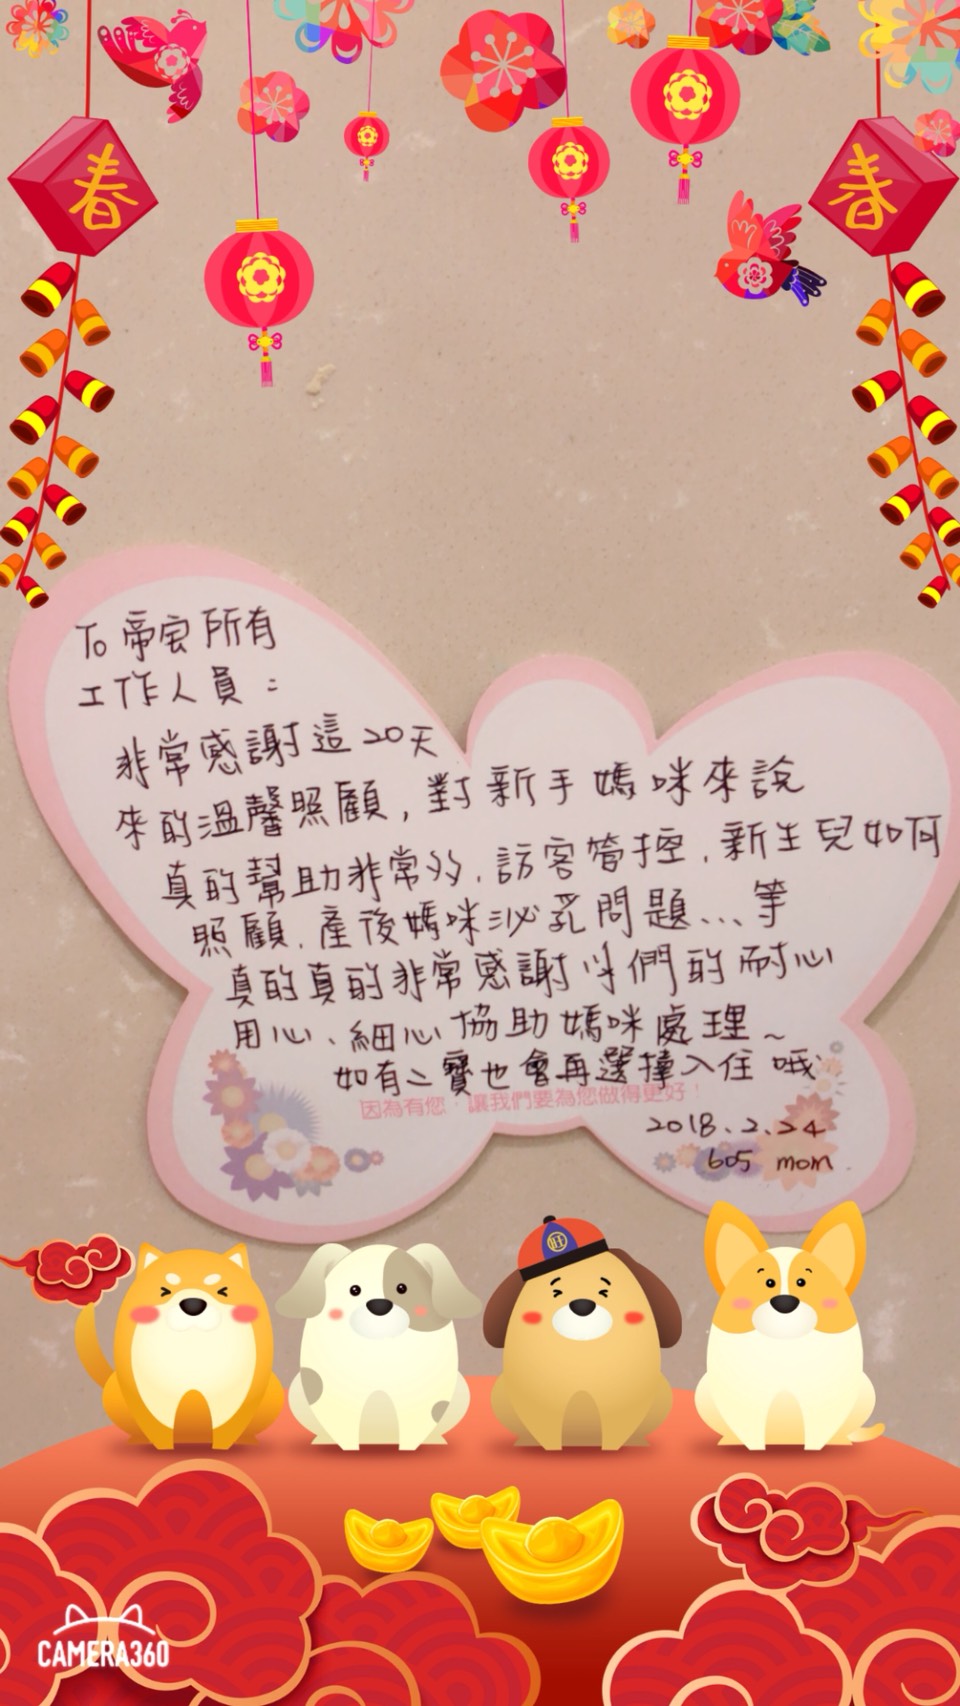 春
春
To 帝宝所有
工作人員：
非常感謝這20天
來的溫馨照顧，對新手媽咪來說
真的幫助非常多，訪客管控，新生兒如何
照顧，產後媽咪泌乳問題...等
真的真的非常感謝你們的耐心
用心、細心協助媽咪處理~
如有二寶也會再選擇入住哦
因為有您．讓我們要為您做得更好！
2018.2.24
605 mom
旺
CAMERA360